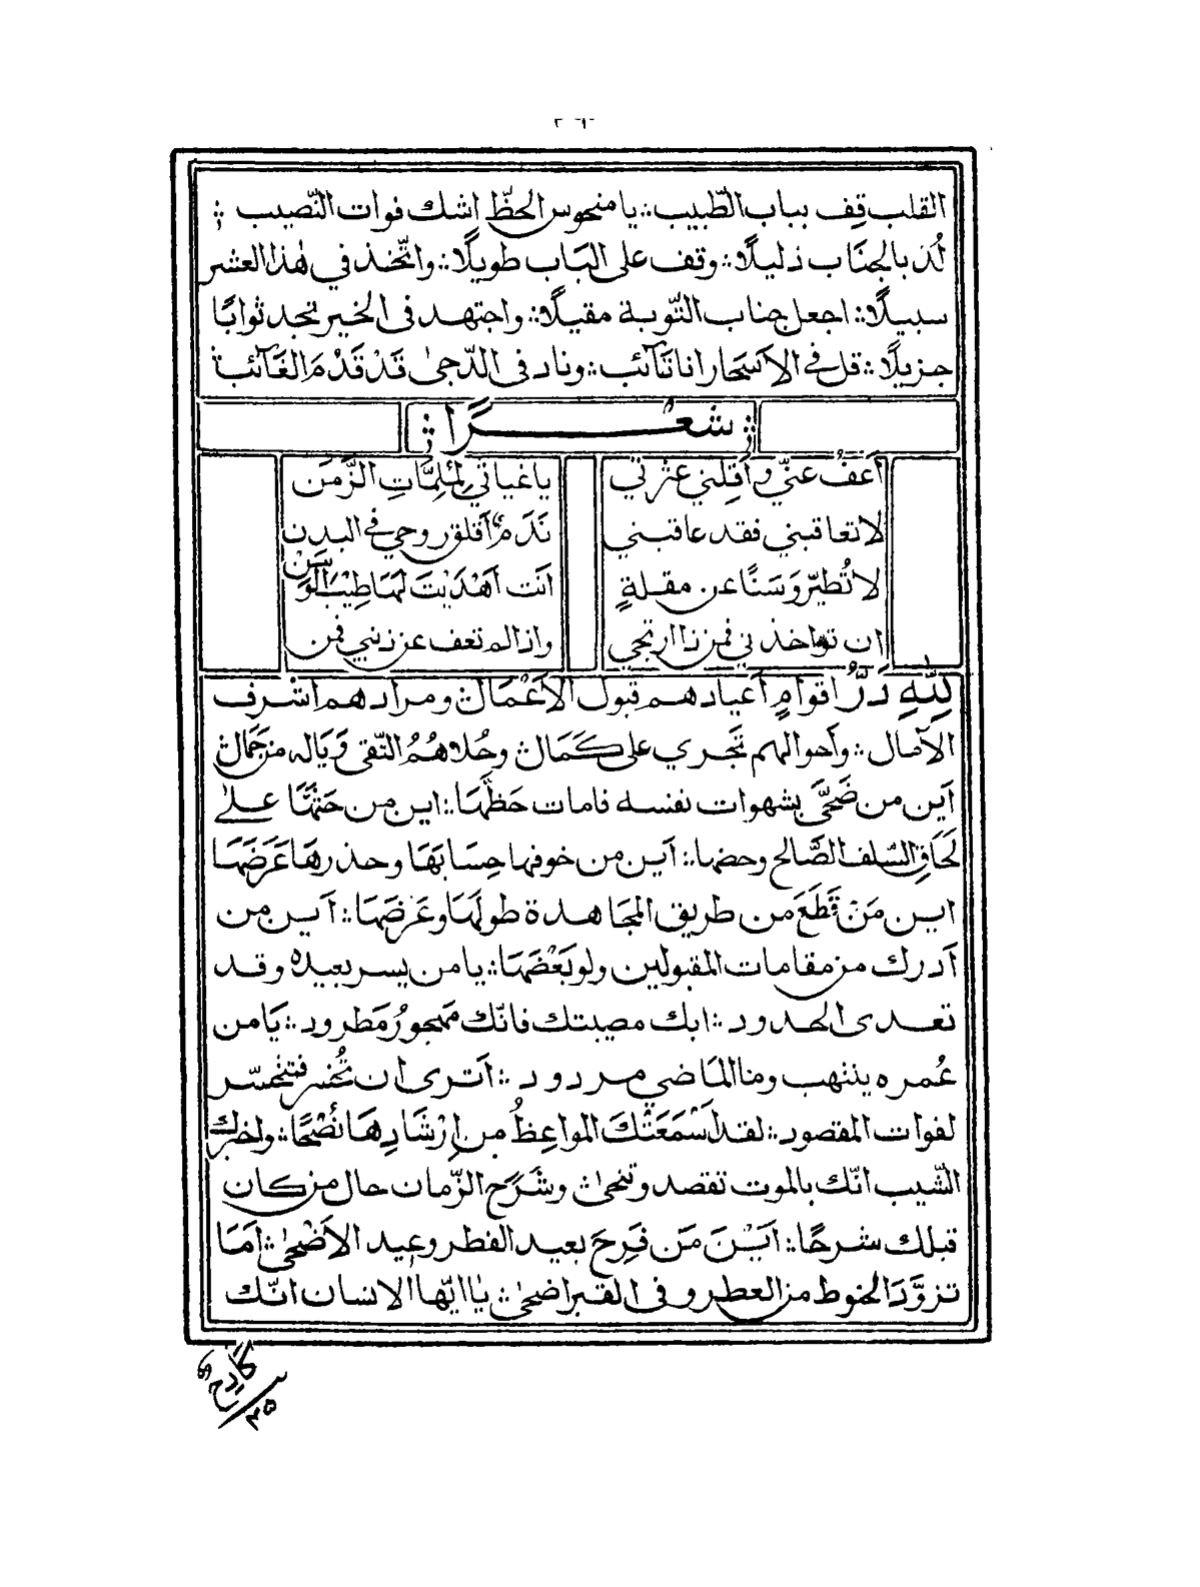 القلب قِف بباب الطّبيب ؞ يا منحوس الحظّ اشك فوات النّصيب ؞
لُذ بالجنَاب ذليلًا ؞ وقف على البَاب طويلًا ؞ واتّخذ في هٰذا العشر
سبيلًا ؞ اجعل جناب التّوبة مقيلًا ؞ واجتهد فى الخير تجد ثوابًا
جزيلًا ؞ قل في الاَسَحار انا تَآئب ؞ وناد فى الدّجىٰ قَدْ قَدْمَ الغَآئب
؞ شعْرًا ؞
اَعَفُ عنّي واَقِلني عثرتي
ياغياثي لمُلِمَّاتِ الزَّمَن
لا تعاقبني فقد عاقبني
نَدَمٌ اَقلق روحي في البدن
لا تُطيّر وَسَنًا عن مقلةٍ
اَنت اَهْدَيْتَ لهَا طِيْبَ الوَسَن
ان تواخذني فمن ذا ارتجي
واذا لم تعف عن ذنبي فمن
لِلّٰهِ دَرُّ اقوامٍ اَعياد هم قبول الاَعْمَال ؞ ومراد هم اشرف
الاٰمال ؞ واَحوالهم تَجري على كَمَال ؞ وحُلاهُمُ التّقى وَيَاله من جَمَال ؞
اَين من ضَحَّى بشهوات نفسه فامات حَظّهَا ؞ اين من حَثّهَا علىٰ
لَحَاقِ السّلف الصَّالح وحضها ؞ اَين من خوفها حِسَابَهَا وحذرها عَرَضَهَا
اين مَنْ قَطَعَ من طريق المجَاهدة طولهَا وعَرَضَهَا ؞ اَين من
اَدرك من مقامات المقبولين ولو بَعْضَهَا ؞ يا من يسر بعيده وقد
تعدى الحدود ؞ ابك مصيبتك فانّك مَهجورُ مَطرود ؞ يَا من
عُمره ينتهب وما الماضي مردود ؞ اَترى ان تُخسر فتنخسّر
لفوات المقصود ؞ لقد اَسْمَعَتْكَ المواعِظُ من اِرْشَادِهَا نُصْحًا ؞ واخبرك
الشّيب انّك بالموت تقصد وتنحىٰ ؞ وشَرَح الزّمان حال من كان
قبلك شرحًا ؞ اَيْنَ مَن فَرِحَ بعيد الفطر وعيد الاَضْحىٰ ؞ اَمَا
تزوَّدَ الحنوط من العطر و فى القبر اضحىٰ ؞ يٰا ايّها الانسان انّك
٣٥